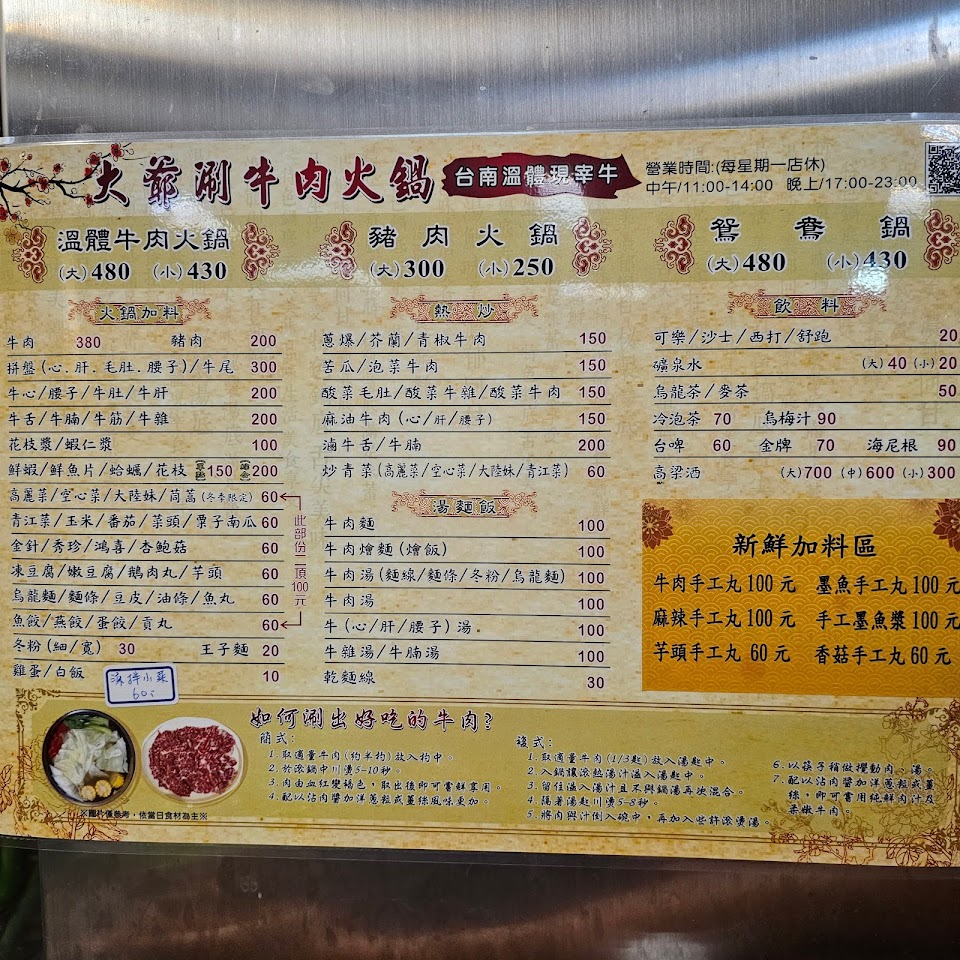 大爺涮牛肉火鍋
台南溫體現宰牛
營業時間:(每星期一店休)
中午/11:00-14:00 晚上/17:00-23:00
溫體牛肉火鍋
(大)480 (小)430
豬肉火鍋
(大)300 (小)250
鴛鴦鍋
(大)480 (小)430
火鍋加料
牛肉 380 豬肉 200
拼盤(心.肝.毛肚.腰子)/牛尾 300
牛心/腰子/牛肚/牛肝 200
牛舌/牛腩/牛筋/牛雜 200
花枝漿/蝦仁漿 100
鮮蝦/鮮魚片/蛤蠣/花枝 150 200
高麗菜/空心菜/大陸妹/茼蒿(冬季限定) 60
青江菜/玉米/番茄/菜頭/栗子南瓜 60
金針/秀珍/鴻喜/杏鮑菇 60
凍豆腐/嫩豆腐/鵝肉丸/芋頭 60
烏龍麵/麵條/豆皮/油條/魚丸 60
魚餃/燕餃/蛋餃/貢丸 60
此部份二項100元
冬粉(細/寬) 30 王子麵 20
雞蛋/白飯 10
涼拌小菜
60
熱炒
蔥爆/芥蘭/青椒牛肉 150
苦瓜/泡菜牛肉 150
酸菜毛肚/酸菜牛雜/酸菜牛肉 150
麻油牛肉(心/肝/腰子) 150
滷牛舌/牛腩 200
炒青菜(高麗菜/空心菜/大陸妹/青江菜) 60
湯麵飯
牛肉麵 100
牛肉燴麵(燴飯) 100
牛肉湯(麵線/麵條/冬粉/烏龍麵) 100
牛肉湯 100
牛(心/肝/腰子)湯 100
牛雜湯/牛腩湯 100
乾麵線 30
飲料
可樂/沙士/西打/舒跑 20
礦泉水 (大)40 (小)20
烏龍茶/麥茶 50
冷泡茶 70 烏梅汁 90
台啤 60 金牌 70 海尼根 90
高梁酒 (大)700 (中)600 (小)300
新鮮加料區
牛肉手工丸100元 墨魚手工丸100元
麻辣手工丸100元 手工墨魚漿100元
芋頭手工丸 60 元 香菇手工丸 60 元
如何涮出好吃的牛肉?
簡式:
1.取適量牛肉(約半杓)放入杓中。
2.於滾鍋中川燙5-10秒。
3.肉由血紅變褐色,取出後即可嘗鮮享用。
4.配以沾肉醬加洋蔥粒或薑絲風味更加。
※圖片僅參考,依當日食材為主※
複式:
1.取適量牛肉(1/3匙)放入湯匙中。
2.入鍋讓滾熱湯汁溢入湯匙中。
3.留住溢入湯汁且不與鍋湯再次混合。
4.隨著湯匙川燙5-8秒。
5.將肉與汁倒入碗中,再加入些許滾燙湯。
6.以筷子稍做攪動肉、湯。
7.配以沾肉醬加洋蔥粒或薑絲,即可嘗用純鮮肉汁及柔嫩牛肉。